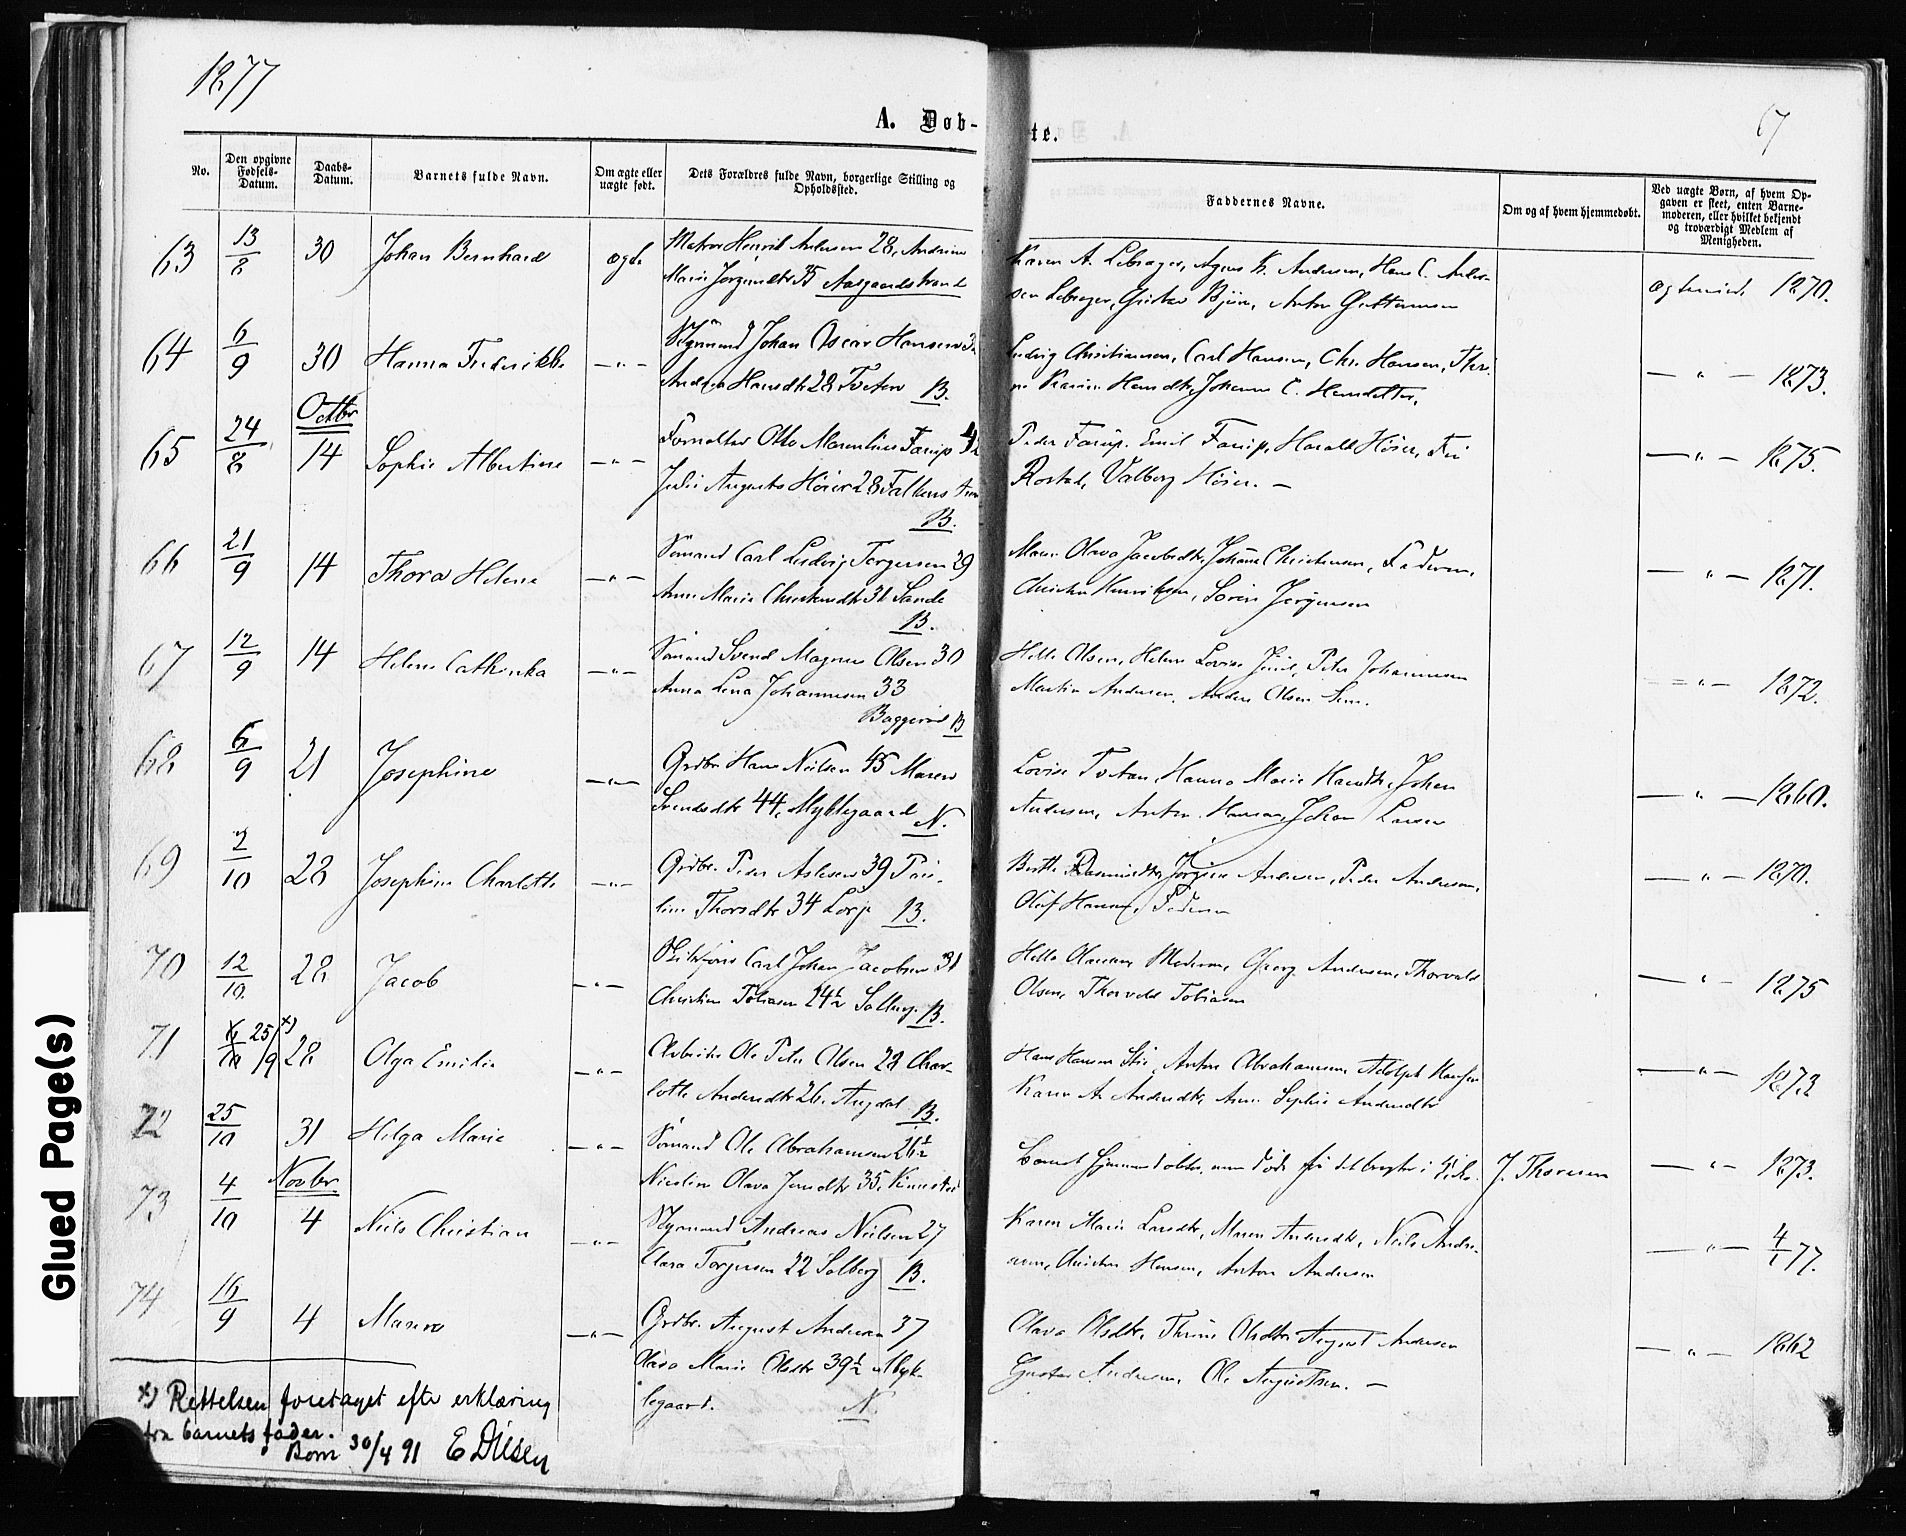 1877
67
A. Døb-
te.
No.
Den opgivne
Fødsels-
Datum.
Daabs-
Datum.
Barnets fulde Navn.
Om ægte eller
uægte født.
Dets Forældres fulde Navn, borgerlige Stilling og
Opholdssted.
Faddernes Navne.
Om og af hvem hjemmedøbt.
Ved uægte Børn, af hvem Op-
gaven er skeet, enten Barne-
moderen, eller hvilket bekjendt
og troværdigt Medlem af
Menigheden.
63 13/8 30 Johan Bernhard ægte Henrik Andersen 28, Andrine
Marie Jørgensdtr 35 Aasgaardstrand
Karen A. Lebsager, Agnes K. Andersen, Hans C. Ander-
sen Lebsager, Gustav Bjørn, Anton Guttormsen
1870.
64 6/9 30 Hanna Fredrikke —"— Johan Oscar Hansen
Andrea Hansdtr 28 Tveten B.
Ludvig Christiansen, Carl Hansen, Chr. Hansen,
Hansdtr, Johanne C. Hansdatter,
—"— 1873.
Octbr
65 24/8 14 Sophie Albertine —"— Forvalter Otto Marentius Farup 42
Julie Augusta Høier 28 Falkens
B.
Peder Farup. Emil Farup, Harald Høier,
Rostad, Valborg Høier. —
—"— 1875.
66 21/9 14 Thora Helene —"— Sømand Carl Ludvig Torgersen 29
Anne Marie 31 Sande
B.
Olava Jacobsdtr, Johan Christensen, Faderen,
Christian Henriksen, Søren Jørgensen
—"— 1871.
67 12/9 14 Helene Cathinka —"— Sømand Svend Magnus Olsen 30
Anna Lena Johannesen 33
Baggerød B
Helle Olsen, Helene Lovise Juul, Peter Johannesen
Martin Andersen, Anders Olsen Sem.
—"— 1872.
68 6/9 21 Josephine —"— Grdbr Hans Nielsen 45 Maren
Svendsdtr 44, Myklegaard N.
Lovise Tveten, Hanna Marie Hansdtr, Johan
Andersen, Anton Hansen, Johan Larsen
—"— 1860.
69 2/10 28 Josephine Charlotte —"— Grdbr. Peder Aslesen 39 Pau-
line Thorsdtr 34 Lorje B.
Berthe Rasmusdtr, Jørgine Andersen, Peder Andersen,
Olaf Hansen, Faderen
—"— 1870.
70 12/10. 28 Jacob —"— Carl Johan Jacobsen 31
Christine Tobiasen 24½ Solberg. B.
Helle Olausen, Moderen, Georg Andersen, Thorvald
Olsen, Thorvald Tobiasen
—"— 1875
71 25/9 x) 28 Olga Emilie —"— Arbeider Ole Peter Olsen 28 Char-
lotte Andersdtr 26. Augdal B.
Hans Hansen Stie, Anton Abrahamsen, Adolph Hansen
Karen A. Andersdtr, Anne Sophie Andersdtr
—"— 1873
72 25/10 31 Helga Marie —"— Sømand Ole Abrahamsen 26½
Nicoline Olava Jensdtr 35,
Barnet hjemmedøbtes, men døde før det bragtes i Kirke. J. Thoresen
—"— 1873.
Novbr.
73 4/10 4 Niels Christian —"— Styrmand Andreas Nielsen 27
Clara Torgersen 22 Solberg B.
Karen Marie Larsdtr, Maren Andersdtr, Niels Andre-
asen, Christian Hansen, Anton Andersen
—"— 77.
74 16/9 4 Maren —"— Grdbr. August Andersen 37
Olava Marie Olsdtr 39½ Myk-
legaard. N.
Olava Olsdtr, Thrine Olsdtr August Andersen
Gustav Andersen, Ole Augustsen. —
—"— 1862
x) Rettelsen foretaget efter erklæring
fra barnets fader.
Borre 30/4 91 E Dilsen
Glued Page(s)